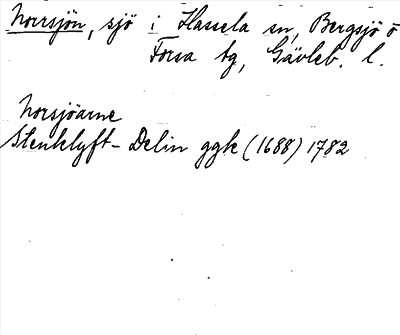 Norrsjön, sjö i Hassela sn, Bergsjö o
Forsa tg, Gävleb. l.
Norsjöarne
Stenklyft- Delin ggk (1688) 1782